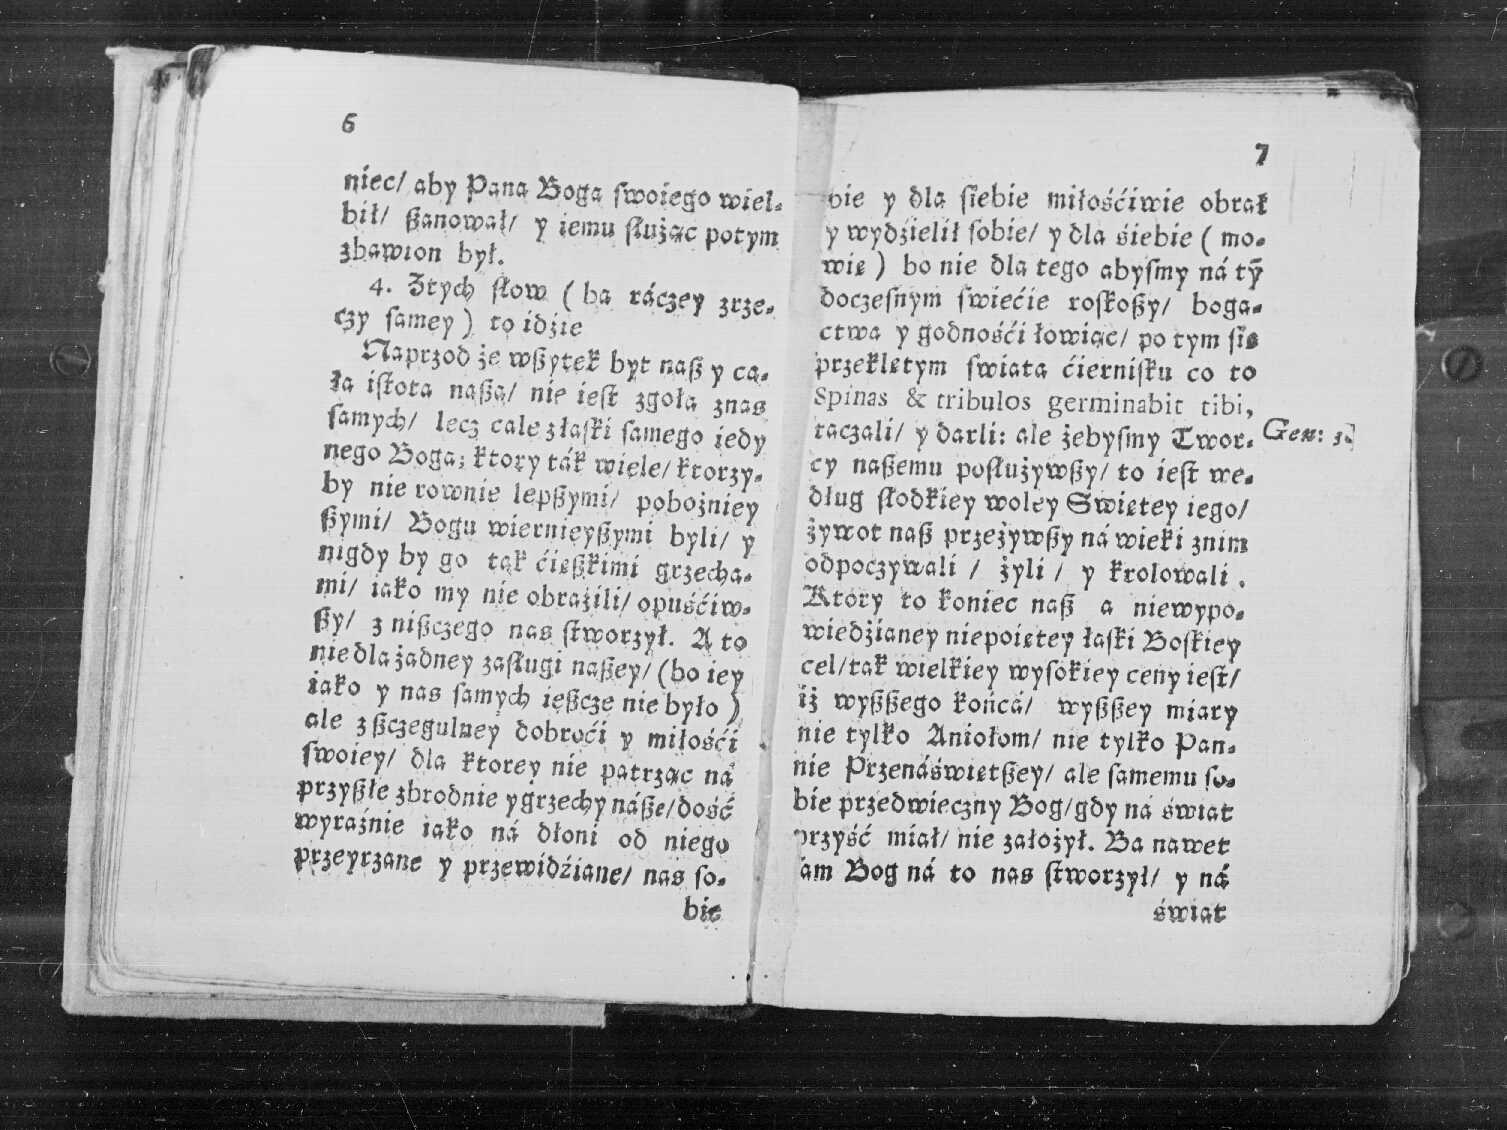 6
niec/ aby Pana Boga swoiego wiel-
bił/ ßanował/ y iemu służąc potym
zbawion był.
4. Ztych słow ( ba ráczey zrze-
czy samey ) to idźie
Naprzod że wßytek byt naß y ca-
ła istota naßa/ nie iest zgoła znas
samych/ lecz cale złaski samego iedy
nego Boga; ktory ták wiele/ ktorzy-
by nie rownie lepßymi/ pobożniey
ßymi/ Bogu wiernieyßymi byli/ y
nigdy by go tak ćięßkimi grzecha-
mi/ iako my nie obraźili/ opuśćiw-
ßy/ z nißczego nas stworzył. A to
nie dla żadney zasługi naßey/ (bo iey
iako y nas samych ießcze nie było )
ale z ßczegulney dobroći y miłośći
swoiey/ dla ktorey nie patrząc ná
przyßłe zbrodnie y grzechy náße/ dość
wyraźnie iako ná dłoni od niego
przeyrzane y przewidźiane/ nas so-
bie
7
bie y dla siebie miłośćiwie obrał
y wydźielił sobie/ y dla śiebie ( mo-
wię ) bo nie dla tego abysmy ná tỹ
doczesnym swiećie roskoßy/ boga-
ctwa y godnośći łowiąc/ po tym się
przeklętym swiata ćiernisku co to
Spinas & tribulos germinabit tibi,
taczali/ y darli: ale żebysmy Twor-
Gen: 3
cy naßemu posłużywßy/ to iest we-
dług słodkiey woley Swiętey iego/
żywot naß przeżywßy ná wieki znim
odpoczywali / żyli / y krolowali.
Ktory to koniec naß a niewypo-
wiedźianey niepoiętey łaski Boskiey
cel/ tak wielkiey wysokiey ceny iest/
iż wyßßego końcá/ wyßßey miary
nie tylko Aniołom/ nie tylko Pan-
nie Przenáświętßey/ ale samemu so-
bie przedwieczny Bog/ gdy ná świat
przyść miał/ nie założył. Ba nawet
sam Bog ná to nas stworzył/ y ná
świat